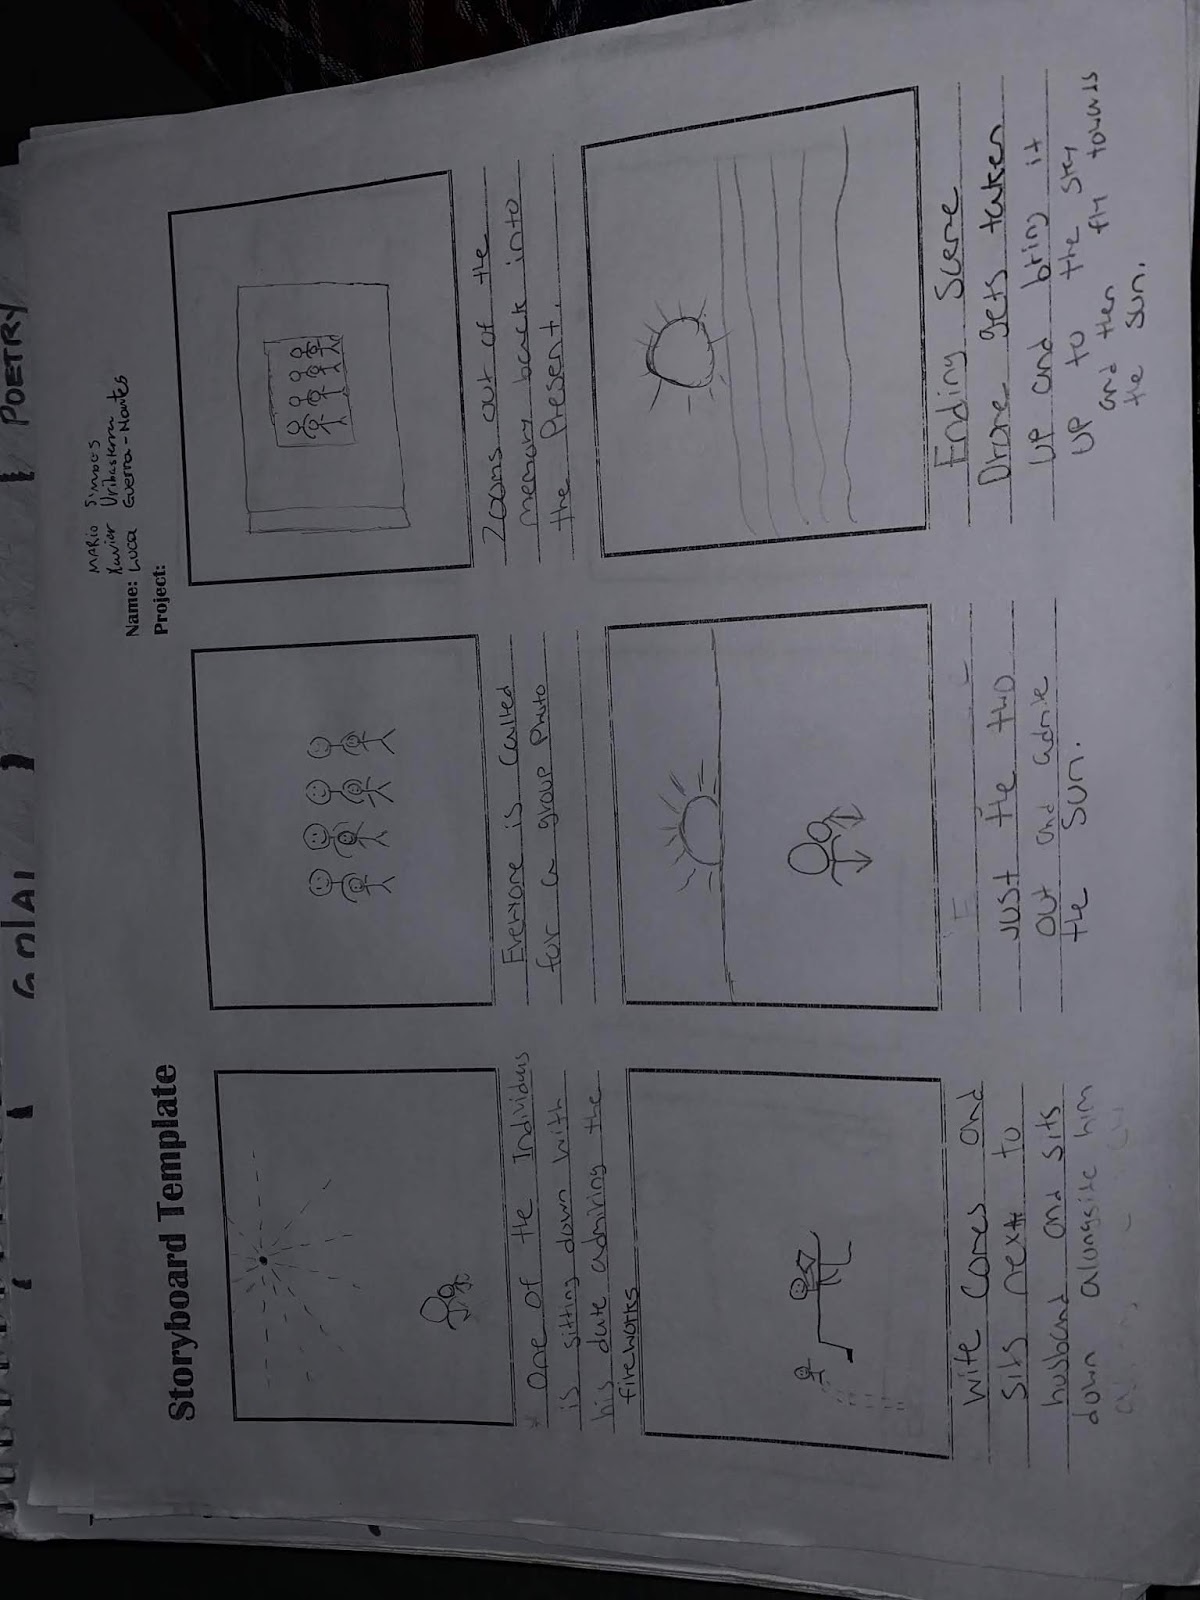 POETRY
Storyboard Template
MARIO Simoes
Xavior
Name: Luca Guerra-Nantes
Project:
* One of the Individuals
is sitting down with
his date admiring the
fireworks
Everyone is called
for a group photo
Zooms out of the
memory back into
the Present.
Wife Comes and
sits next to
husband and sits
down alongside him
Just the two
out and admire
the Sun.
Ending Scene
Drone gets taken
UP and bring it
UP to the sky
and then fly towards
the sun.